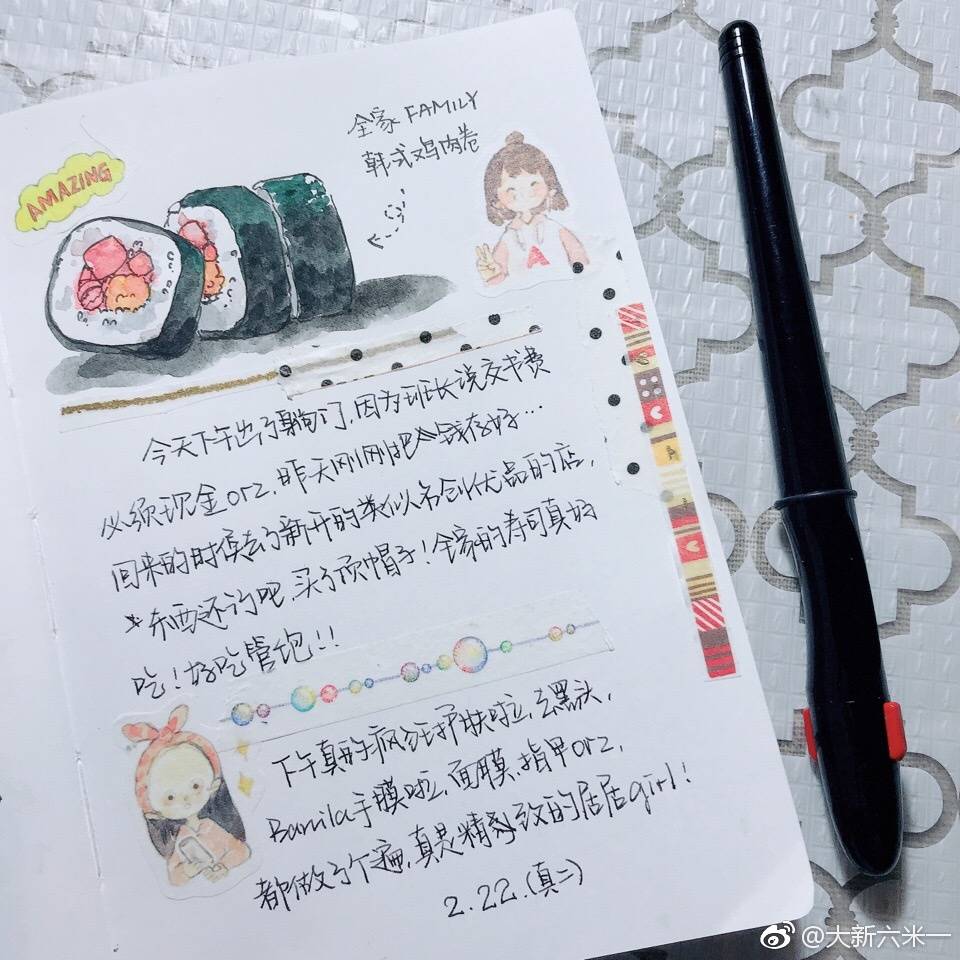 全家 FAMILY
韩式鸡肉卷
AMAZING
A
今天下午出了躺门,因为班长说交书费
必须现金orz,昨天刚刚把金钱存好…
回来的时候去了新开的类似名创优品的店,
东西还许吧,买了顶帽子!全家的寿司真好
吃!好吃管饱!!
下午真的疯狂护肤啦,去黑头,
Banila手膜啦,面膜,指甲orz,
都做了个遍,真是精致的居居girl!
2.22.(真二)
@大新六米一